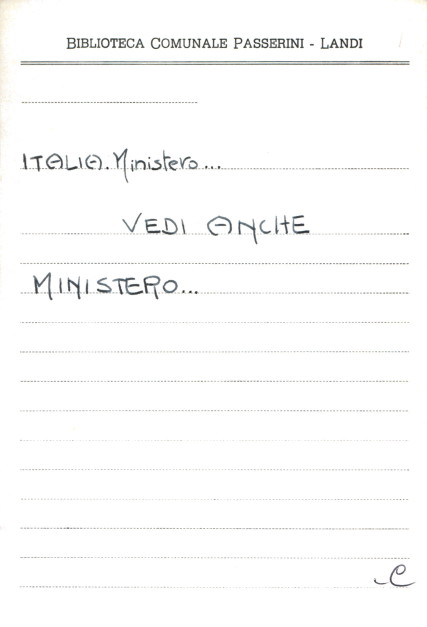 BIBLIOTECA COMUNALE PASSERINI - LANDI
ITALIA. Ministero...
VEDI ANCHE
MINISTERO...